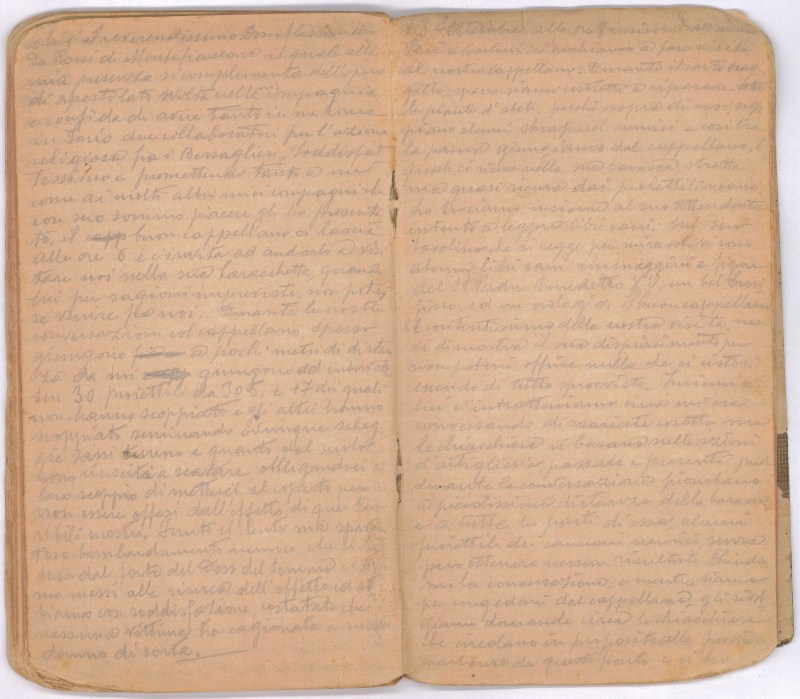 che è il reverendissimo Don Alessandro
De Rossi di Montefiascone il quale alla
mia presenza si complementa dell'opera
di apostolato svolta nelle compagnie
e confida di avere tanto in me come
in Dorio due collaboratori per l'azione
religiosa fra i Bersaglieri. Soddisfat
tissimo e promettendo tanto a me
come ai molti altri miei compagni che
con suo sommo piacere gli ho presenta
to, il buon cappellano ci lascia
alle ore 6 e c'invita ad andarlo a visi
tare noi nella sua baracchetta, quando
lui per ragioni impreviste, non potes
se venire da noi. Durante le nostre
conversazioni col cappellano, spesso
giungono a pochi metri di distan
za da noi giungono dal
30 proiettili da 305, e 17 dei quali
non hanno scoppiato e gli altri hanno
scoppiato seminando ovunque scheg
gie sassi terreno e quanto dal suolo
sono riusciti a scavare obbligandoci al
loro scoppio di metterci al coperto per
non essere offesi dall'effetto di quei ter
ribili mostri. Finito il lento ma spaven
toso bombardamento nemico, che ci
dal forte del Doss del Sommo ci sia
mo mossi alla ricerca dell'effetto ed ab
biamo con soddisfazione costatato che
nessuna vittima ha cagionata e nessun
danno di sorta.
Settembre alle ore insieme
ci rechiamo a fare visita
al nostro cappellano. Durante il corto trag
gitto, spesso siamo costretti a ripararci sotto
le piante d'abete, perchè sopra di noi, scop
piano alcuni shrapnel nemici e così tra
la paura giungiamo dal cappellano, il
quale ci riceve nella sua baracca stretta
ma quasi sicura dai proiettili nemici.
Lo troviamo insieme al suo attendente
intento a leggere libri sani. Sul suo
tavolino che si regge per miracolo vi sono
alcuni libri sani immaggini e figure
del S. Padre Benedetto XV, un bel Croci
fisso ed un orologio. Il buon cappellano
è contentissimo della nostra visita, ma
ci dimostra il suo dispiacimento per
non poterci offrire nulla che ci ristori
essendo di tutto sprovvisto. Insieme a
lui c'intratteniamo circa un'ora
conversando di svariate cosette ma
le chiacchiere si basano sulle azioni
d'artiglieria passate e presenti, perchè
durante la conversazione piombano
a piccolissima distanza della baracca
e a tutte le parti di essa, alcuni
proiettili dei cannoni nemici senza
però ottenere nessun risultato. Chiudia
mo la conversazione e mentre siamo
per congedarci dal cappellano, gli rivol
giamo domande circa le chiacchiere
che circolano in proposito alla prossima
partenza da questo fronte e si ha